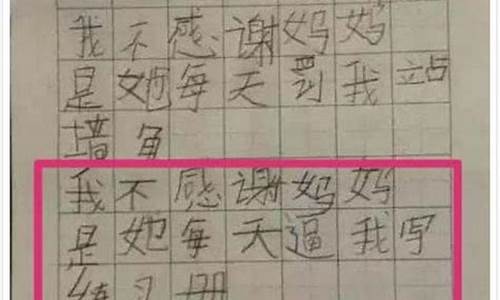 我不感谢妈妈
是她每天罚我站
墙角
我不感谢妈妈
是她每天逼我写
练习册